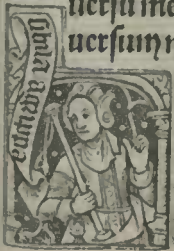 uerſu me
uerſum
Sibila agripina